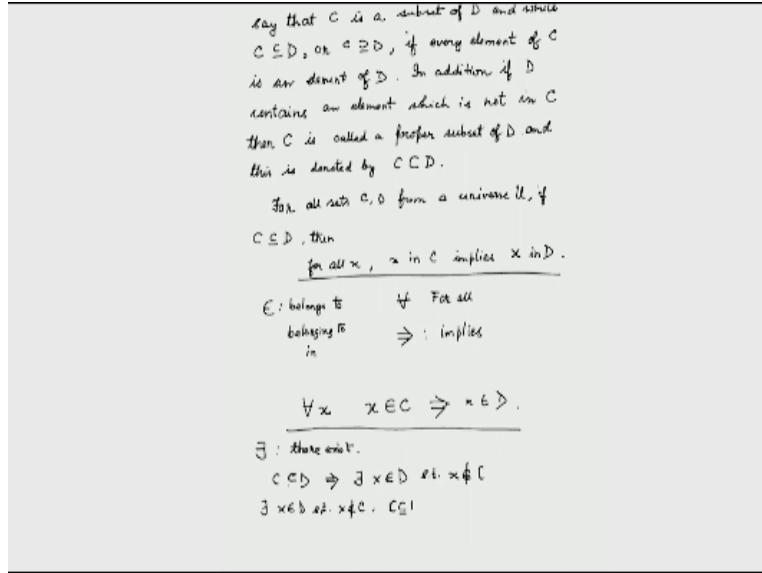 say that C is a subset of D and write
C ⊆ D, or C ⊇ D, if every element of C
is an element of D. In addition if D
contains an element which is not in C
then C is called a proper subset of D and
this is denoted by C ⊂ D.
For all sets C, D from a universe U, if
C ⊆ D, then
for all x, x in C implies x in D.
∈ : belongs to ∀ For all
belonging to ⇒ : implies
in
∀x x ∈ C ⇒ x ∈ D.
∃ : there exist.
C ⊂ D ⇒ ∃ x ∈ D st. x ∉ C
∃ x ∈ D st. x ∉ C. C ⊆ I